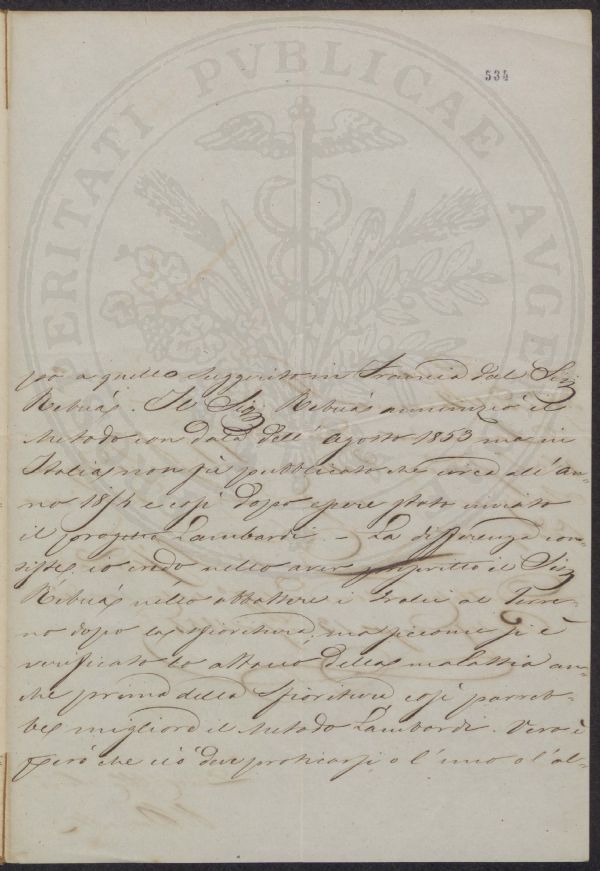 534
po a quello suggerito in Francia dal Sig.
Rebuás. Il Sig. Rebuás annunziò il
Metodo con data dell' agosto 1853 ma in
Italia non fù pubblicato che circa all' an-
no 1854 e così dopo essere stato inviato
il progetto Lambardi. - La differenza con-
siste io credo nello aver suggerito il Sig.
Rebuás nello abbattere i tralci al Terre-
no dopo la sfioritura, ma siccome si è
verificato lo attacco della malattia an-
che prima della Sfioritura così parreb-
be migliore il Metodo Lambardi. Vero è
però che ciò deve praticarsi o l'uno o l'al-
PROSPERITATI PVBLICAE AVGE